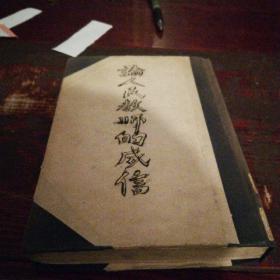 論人民教師的威信